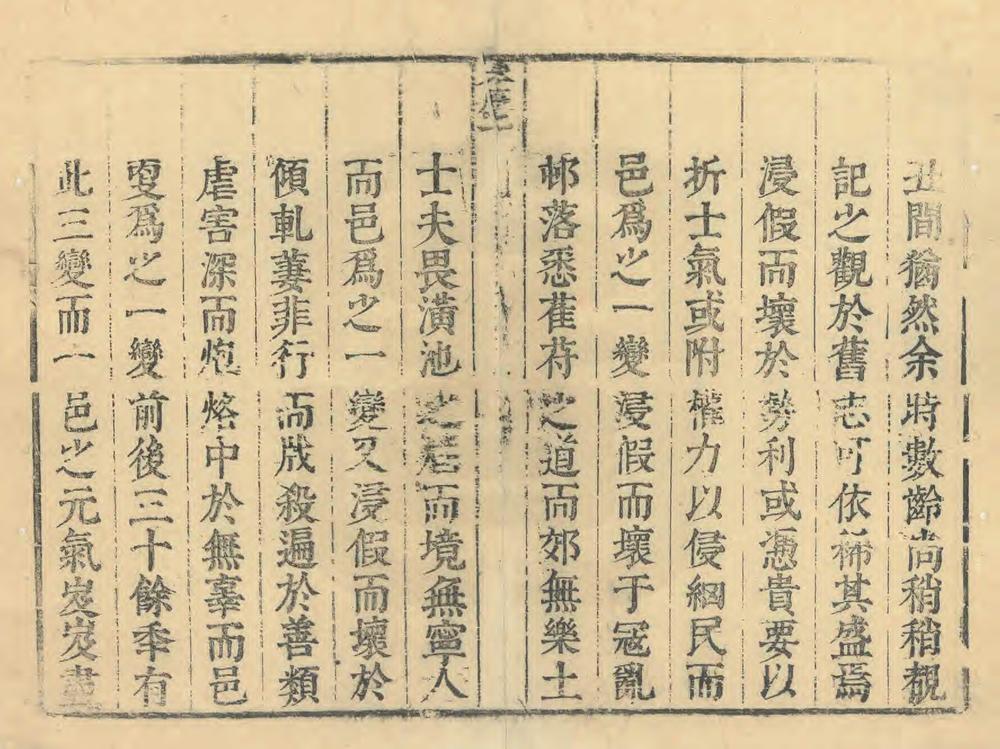 丑間猶然余時數齡尚稍稍覩
記之觀於舊志可依稀其盛焉
浸假而壞於勢利或憑貴要以
折士氣或附權力以侵細民而
邑爲之一變浸假而壞于冦亂
邨落悉萑苻之道而郊無樂土
士夫畏潢池之 而境無寧人
而邑爲之一變又浸假而壞於
傾軋萋菲行而戕殺遍於善類
虐害深而炮烙中於無辜而邑
更爲之一變前後三十餘年有
此三變而一邑之元氣岌岌盡